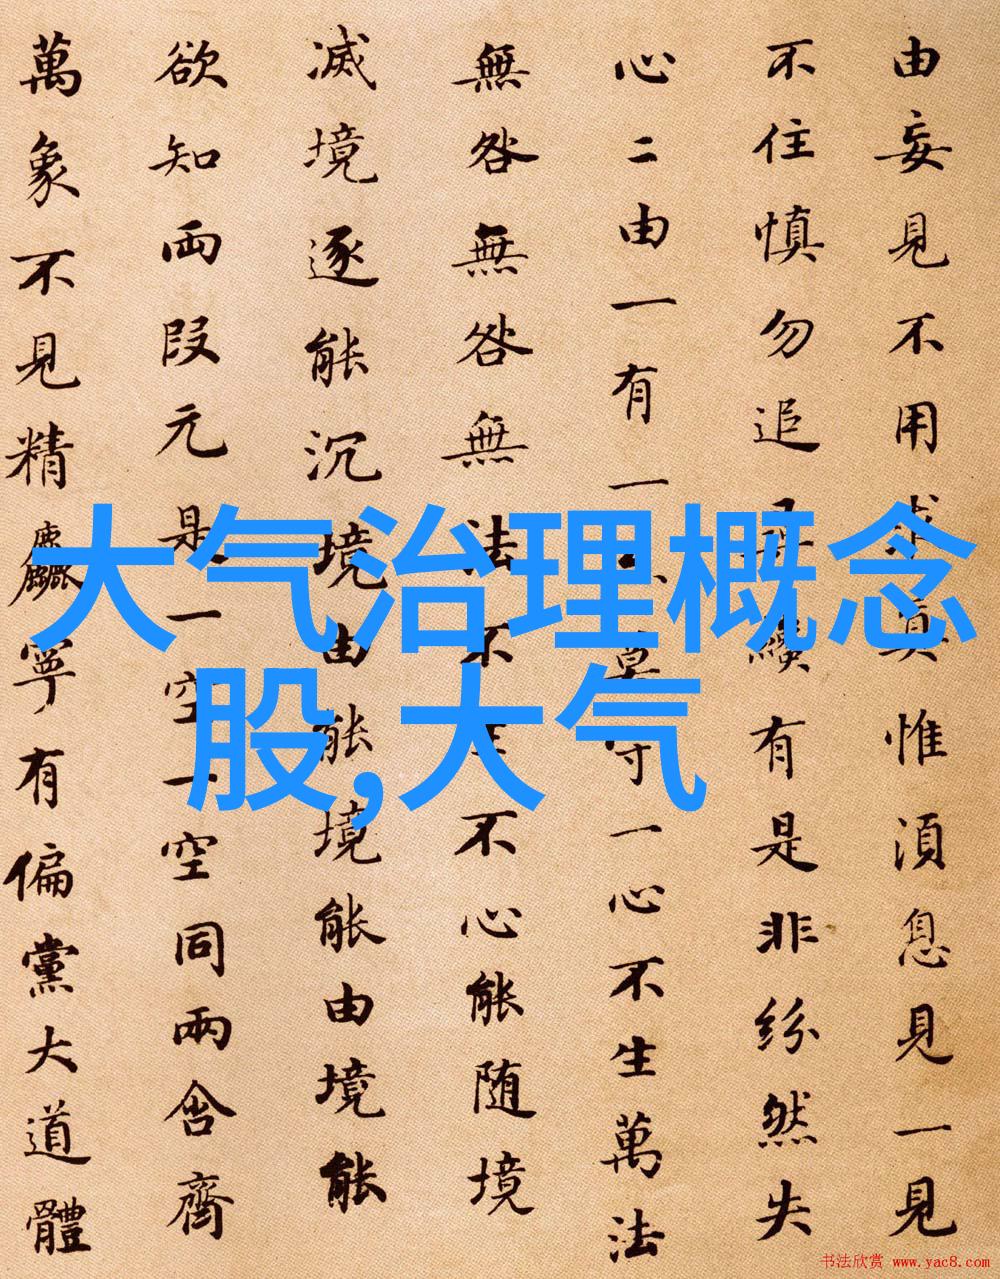 由妄見不用求真惟湏息見一見
不住慎勿追有是非紛然失
心二由一有一莫守一心不生萬法
無咎無咎無法不生不心能随境
滅境逐能沉境由能境能由境能
欲知兩段元是一空一空同兩含齊
萬象不見精麤寧有偏黨大道體
大气治理概念
股,大气
书法欣赏 www.yac8.com